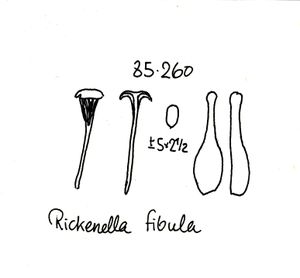 85·260
±5×2½
Rickenella fibula